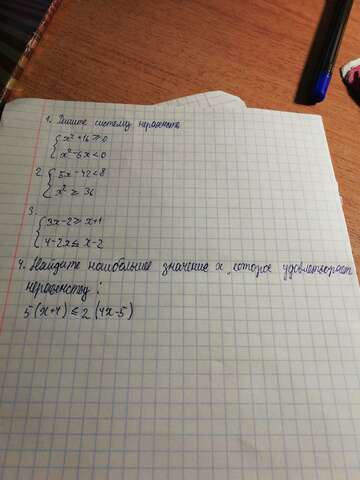 1. Решите систему неравенств
{ x² + 16 ≥ 0
x² - 6x < 0
2. { 5x - 42 < 8
x² ≥ 36
3.
{ 3x - 2 ≥ x + 1
4 - 2x ≤ x - 2
4. Найдите наибольшее значение x, которое удовлетворяет
неравенству:
5(x+4) ≤ 2(4x-5)